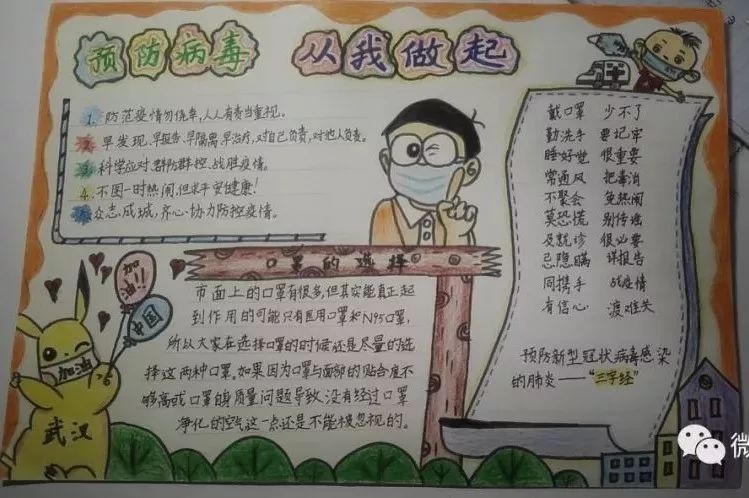 预防病毒 从我做起
1. 防范疫情勿侥幸,人人有责当重视。
2. 早发现、早报告、早隔离、早治疗,对自己负责,对他人负责。
3. 科学应对,群防群控,战胜疫情。
4. 不图一时热闹,但求平安健康!
5. 众志成城,齐心协力防控疫情。
口罩的选择
市面上的口罩有很多,但其实能真正起
到作用的可能只有医用口罩和N95口罩,
所以大家在选择口罩的时候还是尽量的选
择这两种口罩。如果因为口罩与面部的贴合度不
够高或口罩的质量问题导致没有经过口罩
净化的空气这一点还是不能被忽视的。
戴口罩 少不了
勤洗手 要记牢
睡好觉 很重要
常通风 把毒消
不聚会 免热闹
莫恐慌 别传谣
及就诊 很必要
忌隐瞒 详报告
同携手 战疫情
有信心 渡难关
预防新型冠状病毒感染
的肺炎——“三字经”
加油!!
中国
加油
武汉
微